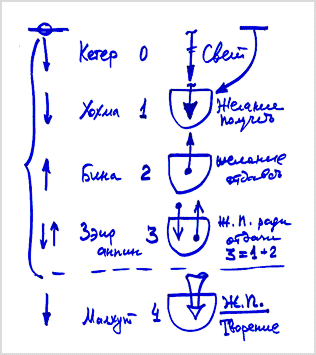 Кетер 0 Свет
Хохма 1 Желание
получать
Бина 2 желание
отдавать
Зэир
анпин 3 Ж. П. ради
отдачи
3 = 1 + 2
Малхут 4 Ж. П.
Творение